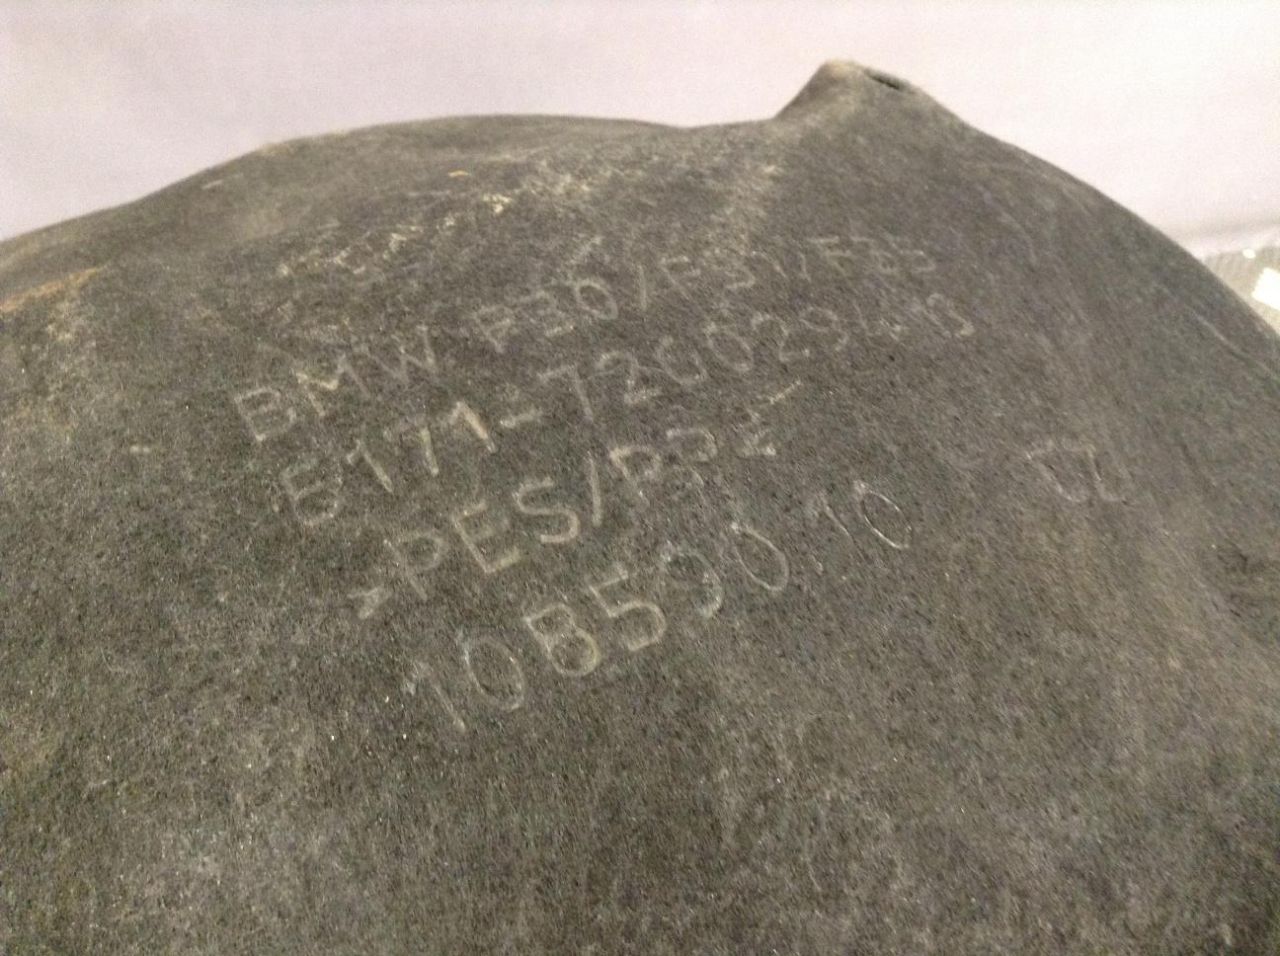 BMW F30/F31/F35
5171-7260294.13
>PES/
108590.10